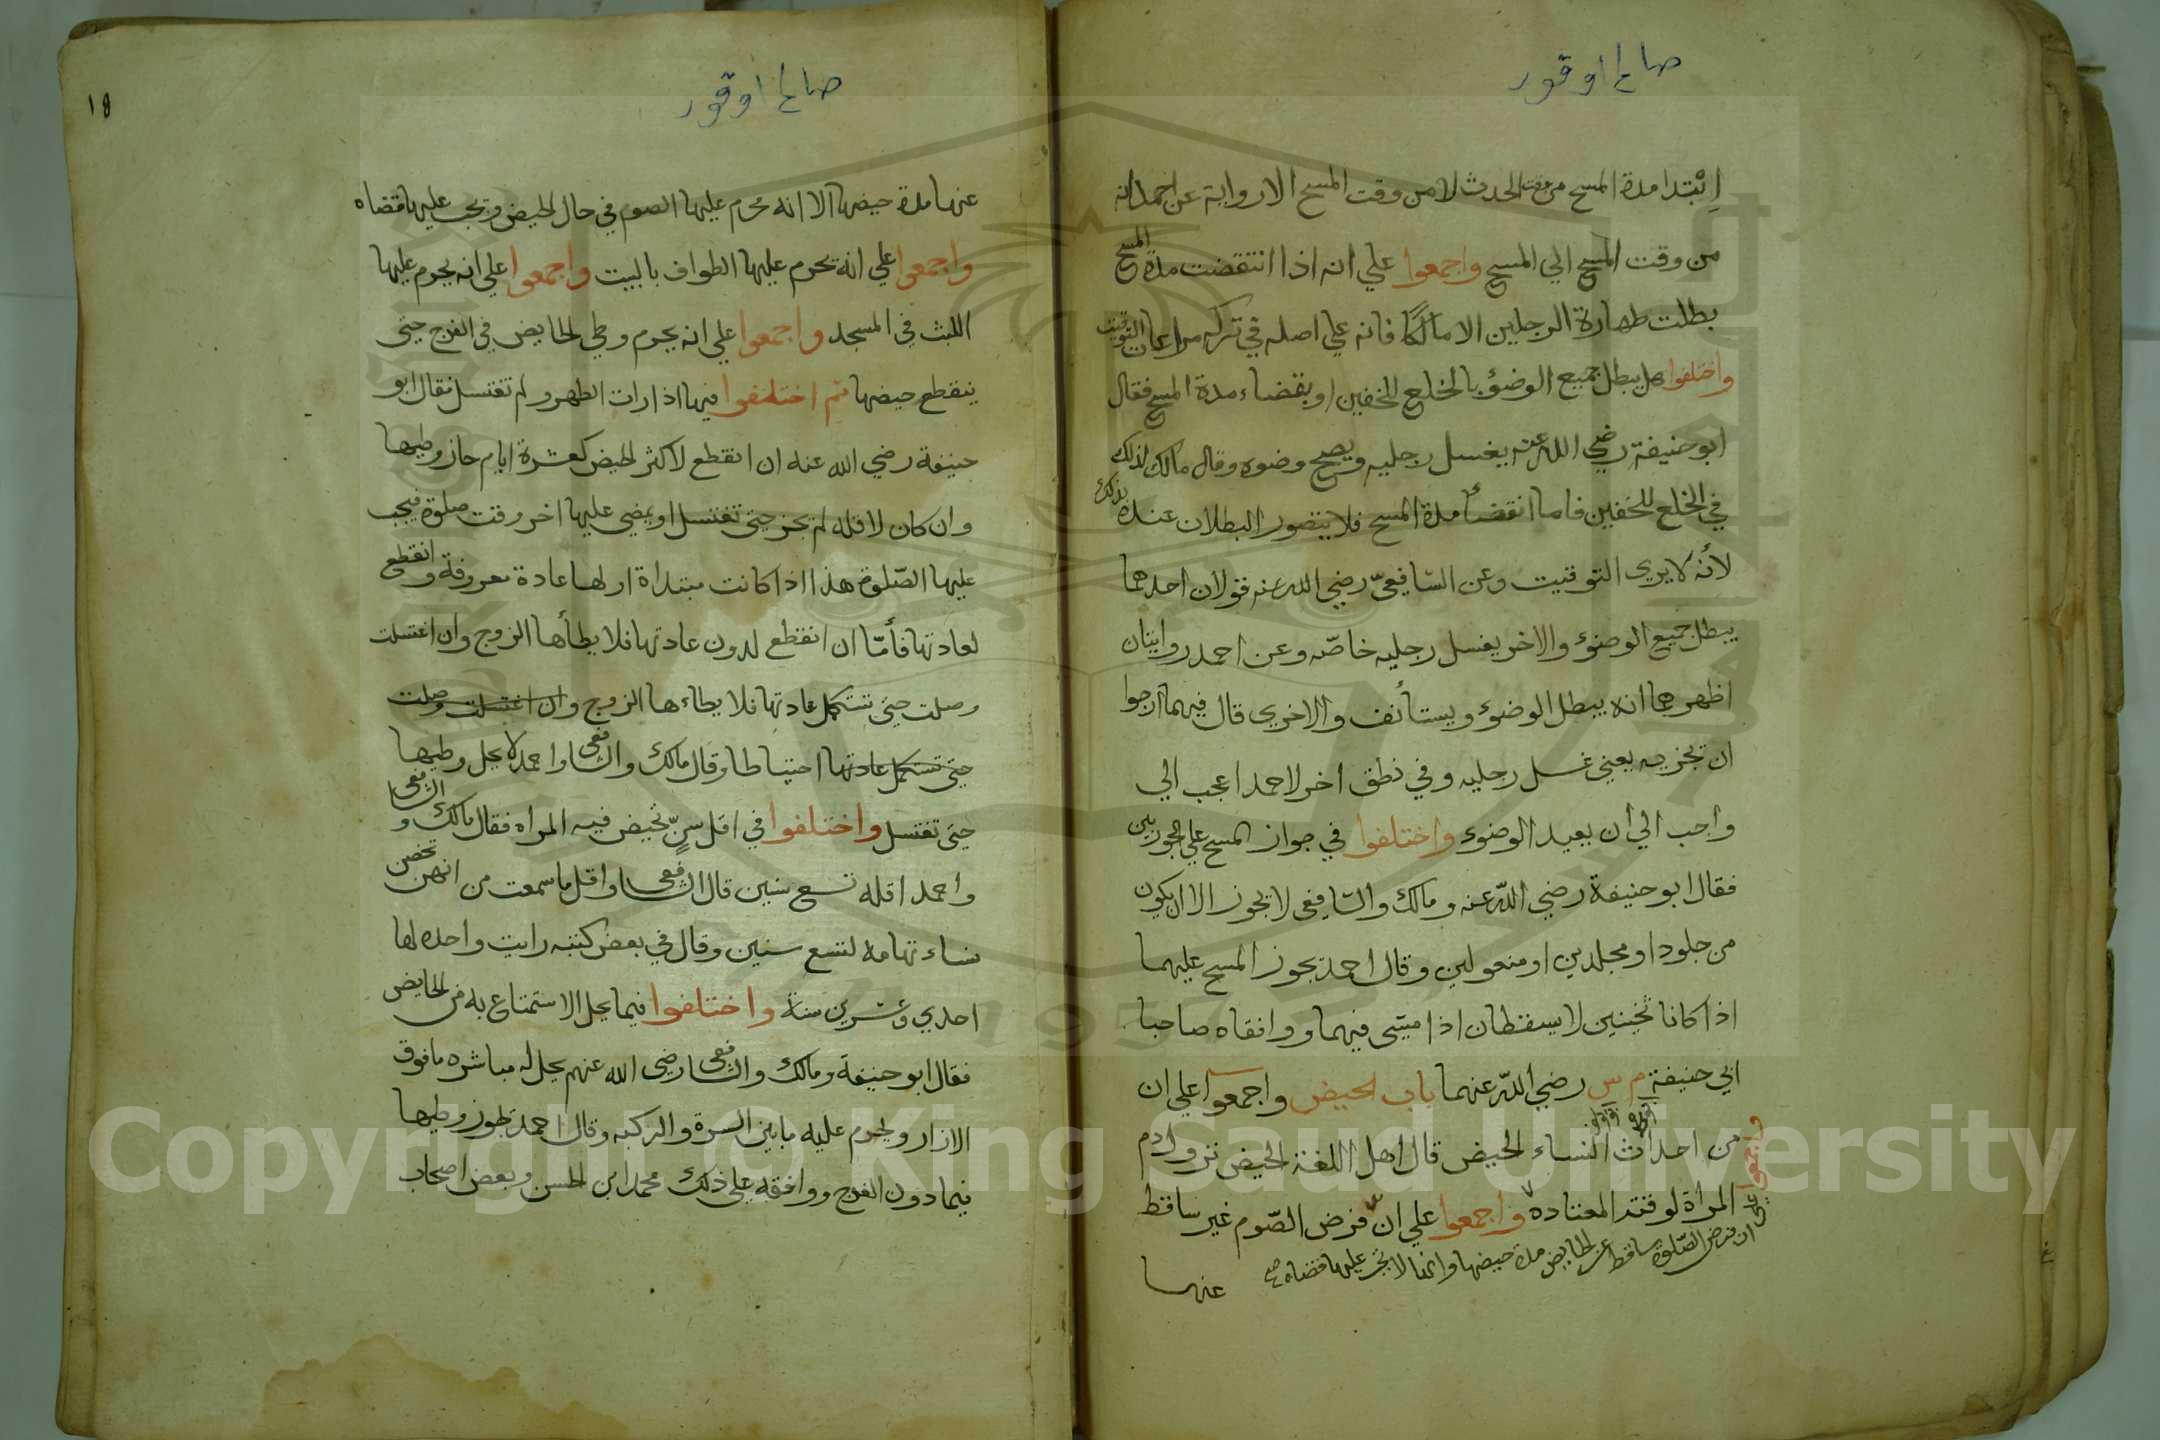 صالح اوقور
اِبْتِدا مدة المسح من وقت الحدث لا من وقت المسح الا رواية عن احمد انه
من وقت المسح الي المسح واجمعوا علي انه اذا انتقضت مدة المسح
بطلت طهارة الرجلين الا مالكا فانه علي اصله في تركه مراعات التوقيت
واختلفوا هل يبطل جميع الوضؤ بالخلع الخفين او بقضاء مدة المسح فقال
ابو حنيفة رضي الله عنه يغسل رجليه ويصح وضوه وقال مالك لذلك
في الخلع للخفين فاما انقضأ مدة المسح فلا يتصور البطلان عنده بذلك
لأنه لا يرى التوقيت وعن الشافعيّ رضي الله عنه قولان احدهما
يبطل جميع الوضؤ والاخر يغسل رجليه خاصّه وعن احمد روايتان
اظهرها انه يبطل الوضؤ ويستأنف والاخرى قال فيهما ارجوا
ان تجزيه يعني غسل رجليه وفي نطق اخر لاحمد اعجب الي
واجب الي أن يعيد الوضوء واختلفوا في جواز المسح علي الجوربين
فقال ابو حنيفة رضي اللّه عنه ومالك والشافعى لا يجوز الا ان يكون
من جلود او مجلدين او منعولين وقال احمد يجوز المسح عليهما
اذا كانا ثخينين لا يسقطان اذا مشى فيهما ووافقاه صاحبا
ابي حنيفة م س رضي اللّه عنهما باب الحيض واجمعوا علي ان
من احداث النساء الحيض قال اهل اللغة الحيض نزول دم
المراة لوقته المعتاده واجمعوا علي ان فرض الصّوم غير ساقط
واجمعوا علي
ان فرض الصّلوة ساقط عن الحايض مدة حيضها وانها لا يجب عليها قضاه صح
عنهما
١٥
صالح اوقور
عنها مدة حيضها الا انه محرم عليها الصوم في حال الحيض ويجب عليها قضاه
واجمعوا علي انه يحرم عليها الطواف بالبيت واجمعوا علي انه يحرم عليها
اللبث في المسجد واجمعوا علي انه يحرم وطي الحايض في الفرج حتى
ينقطع حيضها ثم اختلفوا فيها اذا رات الطهر ولم تغتسل فقال ابو
حنيفة رضي الله عنه ان انقطع لاكثر الحيض كعشرة ايام جاز وطيها
وان كان لاقله لم يجز حتى تغتسل او يمضي عليها اخر وقت صلوة فيجب
عليها الصّلوة هذا اذا كانت مبتداة او لها عادة معروفة وانقطع
لعادتها فأمّا ان انقطع لدون عادتها فلا يطأها الزوج وان اغتسلت
وصلت حتى تستكمل عادتها فلا يطاءها الزوج وان اغتسلت وصلت
حتى تستكمل عادتها احتياطا وقال مالك والشافعى واحمد لا يحل وطيها
حتى تغتسل واختلفوا في اقل سنّ تحيض فيه المراه فقال مالك والشافعى
واحمد اقله تسع سنين قال الشافعى واقل ما سمعت من انهن تحضن
نساء تهامه لتسع سنين وقال في بعض كتبه رايت واحده لها
احدي وعشرين سنة واختلفوا فيما يحل الاستمتاع به من الحايض
فقال ابو حنيفة ومالك والشافعى رضى الله عنهم يحل له مباشره ما فوق
الازار ويحرم عليه ما بين السرة والركبه وقال احمد يجوز وطيها
فيما دون الفرج ووافقه علي ذلك محمد ابن الحسن وبعض اصحاب
Copyright © King Saud University
1957